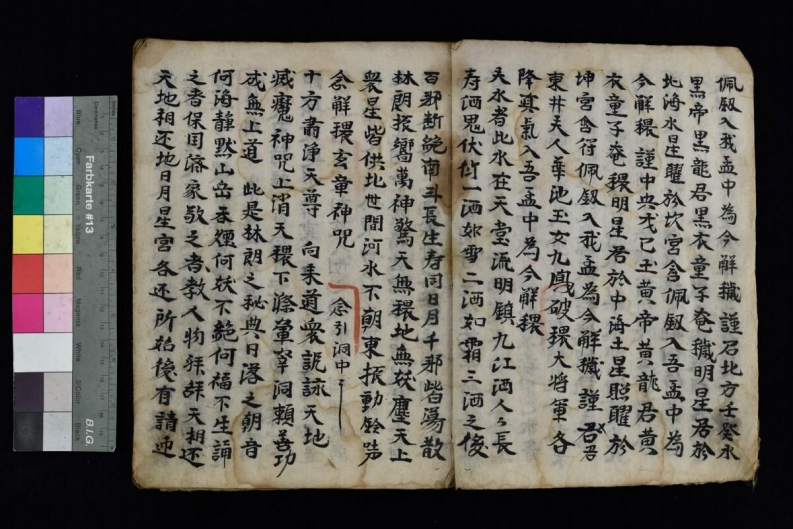 佩釼入我盂中為今解穢謹召北方壬癸水
黑帝黑龍君黑衣童子奄穢明星君於
北海水星曜於坎宮含佩釼入吾盂中為
今解穢謹中央戊己土黄帝黄龍君黄
衣童子奄穢明星君於中海土星照曜於
坤宮含符佩釼入我盂為今解穢謹君
東井夫人華池玉女九鳳破穢大將軍各
降真氣入吾盂中為今解穢
夫水者此水在天堂流明鎮九江洒人々長
寿洒鬼伏一洒如雪二洒如霜三洒之後
百邪断絶南斗長生寿同日月千邪皆蕩散
林朗振嚮萬神驚天無穢地無妖塵天上
衆星皆供北世間河水不朝東振動鈴声
念解穢玄章神咒 念引洞中
十方肅淨天尊 向来道衆諷詠天地
滅魔神咒上消天穢下滌洞頼善功
成無上道 此是林朗之秘典日洛之朝音
何海静黙山岳煙何妖不絶何福不生誦
之者保国家敬之者教人物拜辞天相还
天地相还地日月星宮各还所始後有請迎
Farbkarte #13
B.I.G.
Centimetres
Blue
Cyan
Green
Yellow
Red
Magenta
White
3/Color
Black